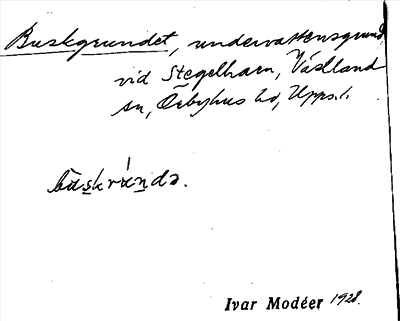 Buskgrundet, undervattensgrund
vid Stegelharn, Västland
sn, Örbyhus hd, Upps. l.
bùskrúndə.
Ivar Modéer 1928.